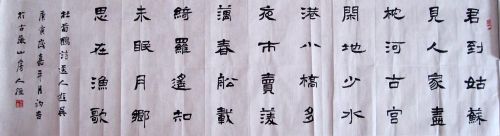 君到姑蘇
見人家盡
枕河古宮
閑地少水
港小橋多
夜市賣菱
藕春舩載
綺羅遙知
未眠月鄉
思在漁歌
杜荀鶴詩送人遊吳
庚寅歲嘉平月初吉
於古燕山房